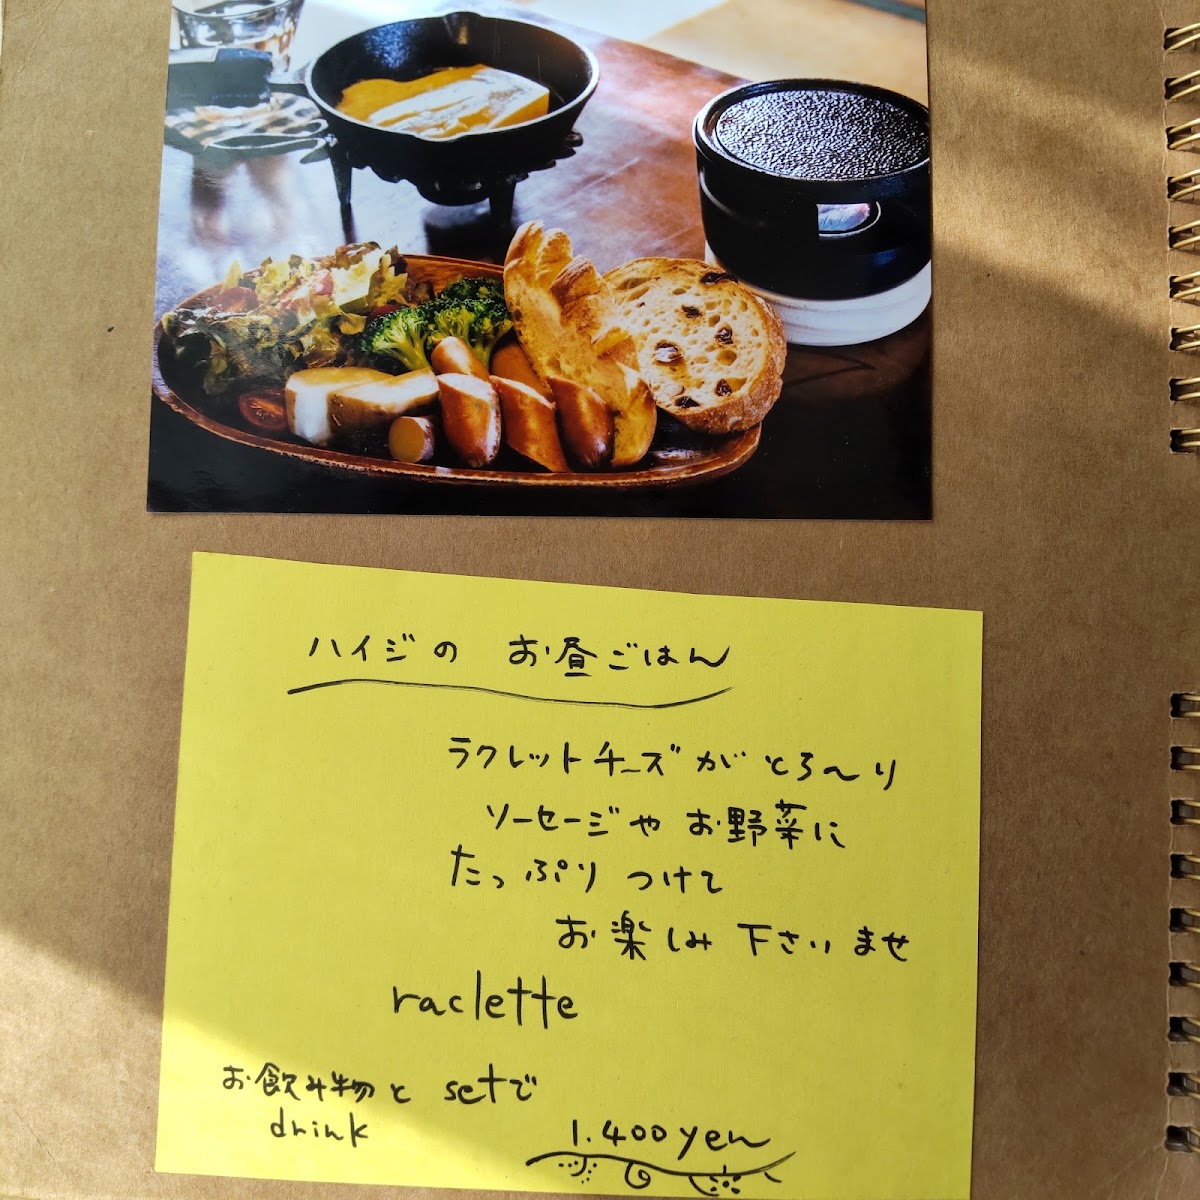 ハイジの お昼ごはん
ラクレットチーズがとろ〜り
ソーセージや お野菜に
たっぷり つけて
お楽しみ 下さいませ
raclette
お飲み物と setで
drink
1.400yen